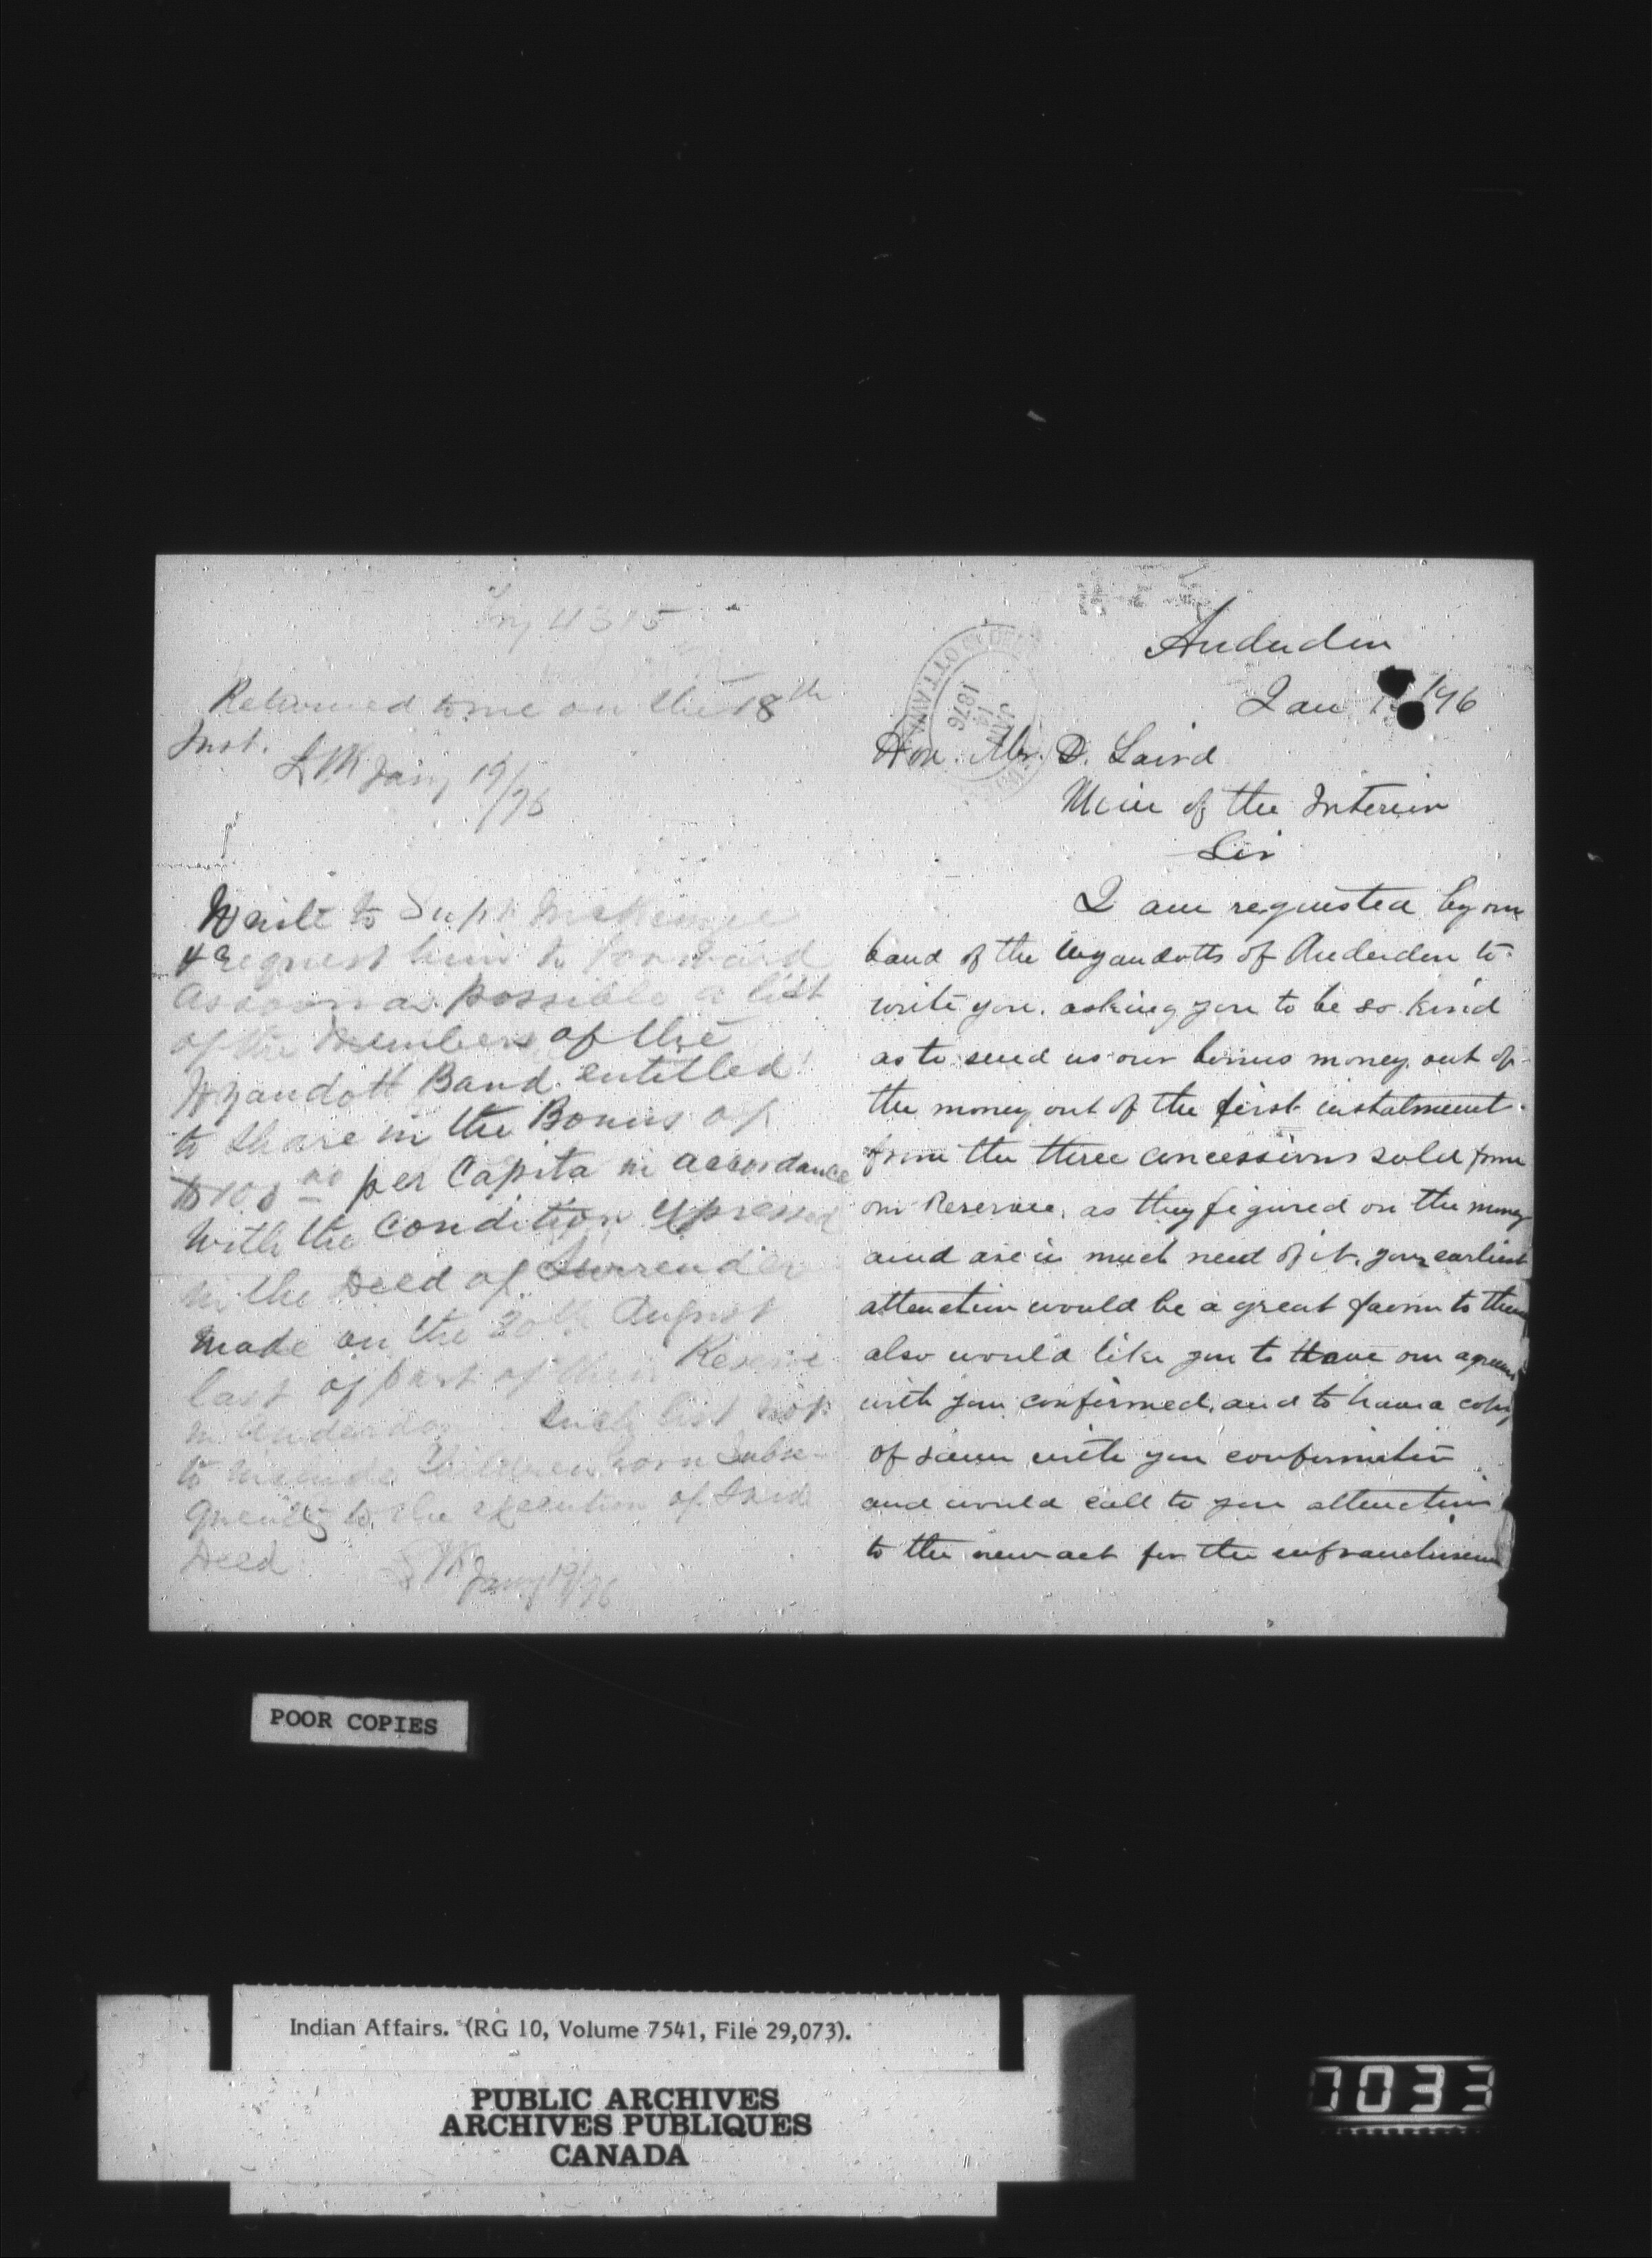 4315
Returned to me on the 18th
Inst.
Jany 19/76
Write to Supt McKenzie
& request him to forward
as soon as possible a list
of the members of the
Wyandott Band entitled
to share in the Bonus of
$100 00 per Capita in accordance
with the condition expressed
in the Deed of Surrender
made on the 20th August
last of part of their Reserve
in Anderdon Such list not
to include Children born Subse-
quently to the execution of said
Deed
Jany 19/76
Anderdon
Jan /76
OTTAWA
JAN 14
1876
Hon. Mr. D. Laird
Minr of the Interior
Sir
I am requested by our
band of the Wyandotts of Anderdon to
write you. asking you to be so kind
as to send us our bonus money out of
the money out of the first instalment
from the three concessions sold from
our Reserve, as they figured on the money
and are in much need of it, your earliest
attenction would be a great favor to them
also would like you to Have our agreem
with you confirmed, and to have a copy
of same with your confirmation
and would call to your attenction
to the new act for the enfranchisem
POOR COPIES
Indian Affairs. (RG 10, Volume 7541, File 29,073).
PUBLIC ARCHIVES
ARCHIVES PUBLIQUES
CANADA
0033